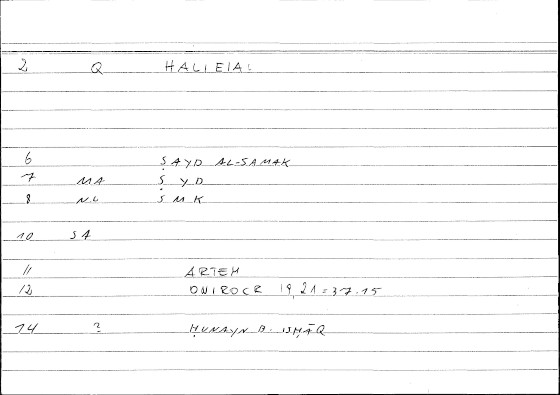 2 Q HALIEIA:
6 ṢAYD AL-SAMAK
7 MA Ṣ Y D
8 NL S M K
10 SA
11 ARTEM
12 ONIROCR 19,21=37.15
14 ? ḤUNAYN B. ISḤĀQ